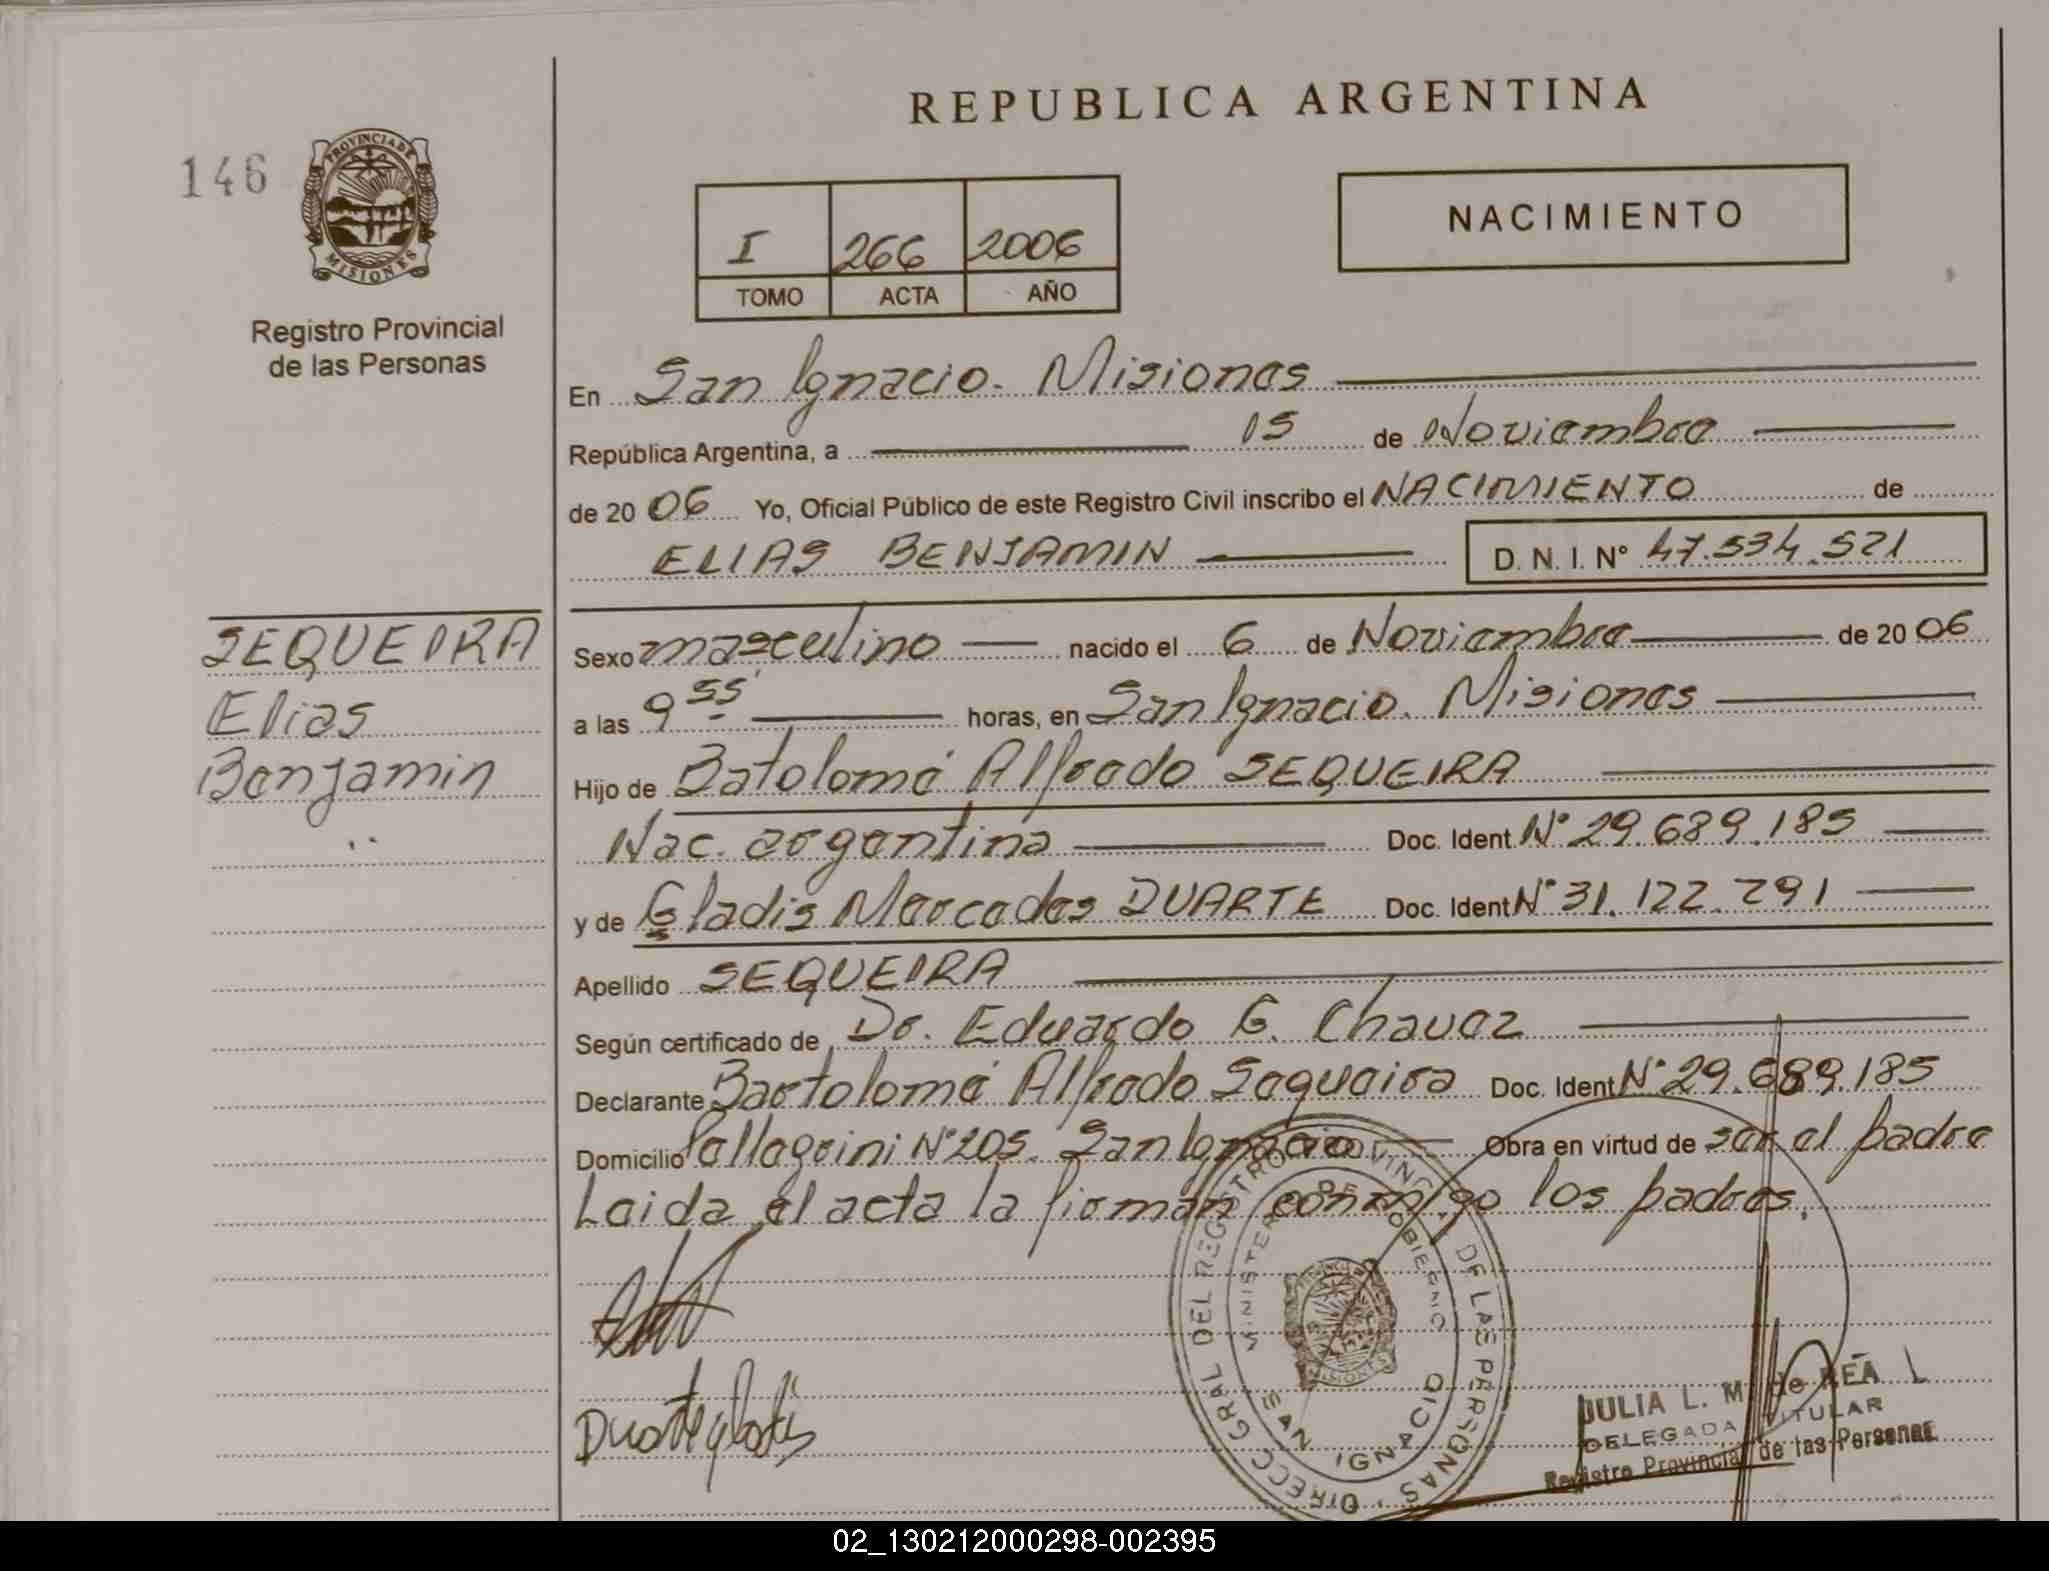 REPUBLICA ARGENTINA
146
PROVINCIA DE
MISIONES
Registro Provincial
de las Personas
NACIMIENTO
I 266 2006
TOMO ACTA AÑO
En San Ignacio. Misiones
República Argentina, a 15 de Noviembre
de 2006 Yo, Oficial Público de este Registro Civil inscribo el NACIMIENTO de
ELIAS BENJAMIN D. N. I. N° 47.534.521
SEQUEIRA
Elias
Benjamin
Sexo masculino nacido el 6 de Noviembre de 2006
a las 9 55' horas, en San Ignacio. Misiones
Hijo de Batolomé Alfredo SEQUEIRA
Nac. argentina Doc. Ident N° 29.689.185
y de Gladis Mercedes DUARTE Doc. Ident N° 31.122.791
Apellido SEQUEIRA
Según certificado de Dr. Eduardo G. Chavez
Declarante Bartolomé Alfredo Sequeira Doc. Ident N° 29.689.185
Domicilio Pellegrini N° 205. San Ignacio Obra en virtud de ser el padre
Leida el acta la firman conmigo los padres.
Duarte gladis
DIRECC GRAL DEL REGISTRO PROVINCIAL DE LAS PERSONAS
MINISTERIO DE GOBIERNO
SAN IGNACIO
MISIONES
JULIA L. M. de REA
DELEGADA TITULAR
Registro Provincial de las Personas
02_130212000298-002395